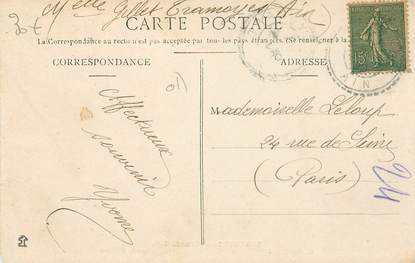 Melle Gillet Tramoyes Ain
CARTE POSTALE
La Correspondance au recto n'est pas acceptée par tous les pays étrangers. (Se renseigner
CORRESPONDANCE
ADRESSE
Affectueux
souvenir
Yvonne
Mademoiselle Leloup
24 rue de Seine
(Paris)
24
15
AIN